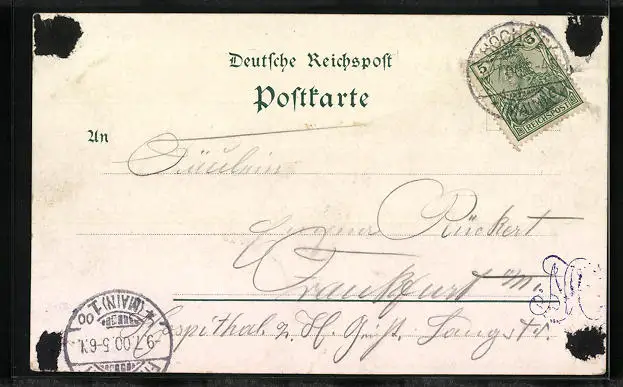 Deutsche Reichspost
Postkarte
5 5
REICHSPOST
An
Fräulein
Rückert
Frankfurt a/m.
Hospithal z. H. Geist. Langestr.
(MAIN) 1. 00
-9.7.00.5-6N.